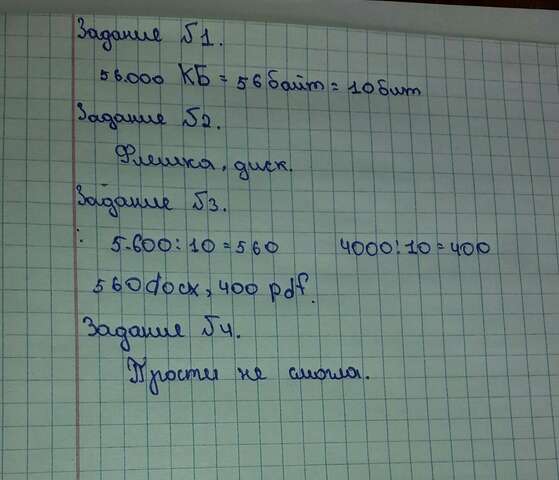 Задание №1.
56.000 КБ = 56 байт = 10 бит
Задание №2.
Флешка, диск.
Задание №3.
: 5.600 : 10 = 560 4000 : 10 = 400
560 docx, 400 pdf.
Задание №4.
Прости не смогла.